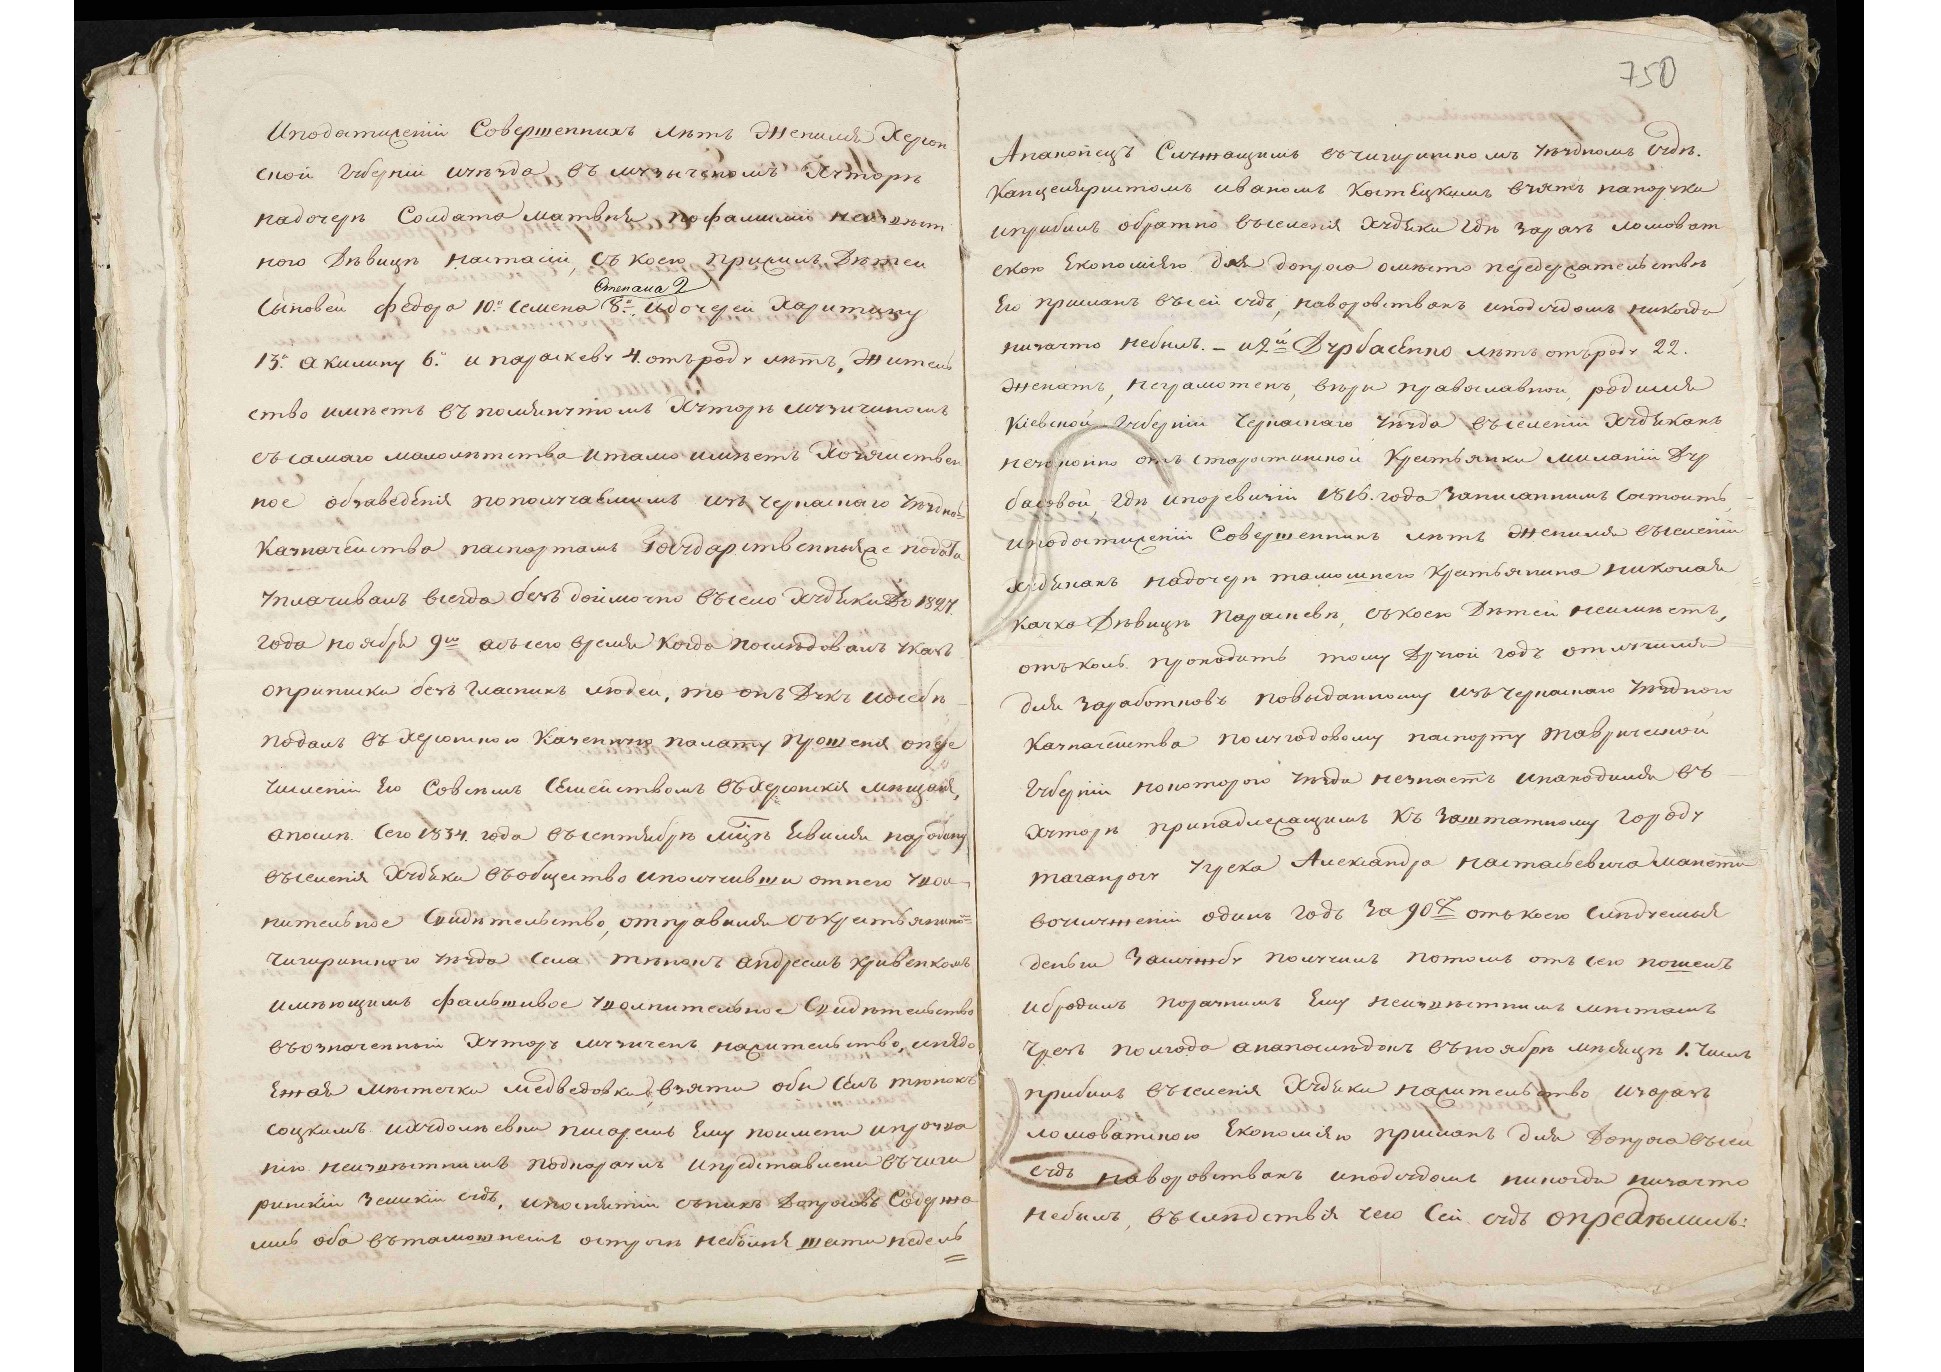 Иподостиженіи Совершенныхъ лѣтъ Женился Херсон
ской Губерніи и уѣзда въ музычскомъ Хуторѣ
надочерѣ Солдата матвѣя пофамиліи неизвѣст
ного Дѣвицѣ настасіи, съ коею прижилъ Дѣтей
Степана 2
Сыновей Федора 10. Семена 8. идочерей Харитину
13. акилину 6. и параскеву 4. отъроду лѣтъ, Житель
ство имѣетъ въ помянутомъ Хуторѣ музичиномъ
съсамаго малолѣтства итамо имѣетъ Хозяйствен
ное обзаведенія пополучаемымъ изъ Черкаскаго Уѣздно
Казначейства паспортамъ Государственныяже подати
уплачивалъ всегда безъ доимочно въсело Худяки до 1827
года ноября 9го авъсего время когда последовалъ указъ
оприписки безъ гласныхъ людей, то онъ Дикъ и о себѣ
подалъ въ Херсонскою Казенную палату прошенія опере
численіи Его Совсемъ Семействомъ въ Херсонскія мѣщане,
апослѣ Сего 1834. года въ сентябрѣ мцѣ явился народину
въселенія Худяки въобщество иполучивши отнего уволь
нительное Свидѣтельство, отправился съкрестьянино
Чигиринского уѣзда Села тѣнокъ андреемъ кривенкомъ
имѣющимъ фальшивое уволнительное Свидѣтельство
въозначенный Хуторъ музиченъ нажительство, инедо
езжая мѣстечка медведовки, взяты оби Селъ тѣнокъ
соцкимъ ихудолѣевки писаремъ Ему поимени ипрозва
нію неизвѣстнимъ подкараулъ ипредставлени въчиги
ринскій Земскій судъ, ипоснятіи сънихъ Допросовъ Содержа
лись оба вътамошнемъ острогѣ неболея шести недель
750
Анаконецъ Служащимъ въчигиринскомъ Уѣздномъ Судѣ.
Канцеляристомъ иваномъ Костецкимъ взятъ напоруки
иприбылъ обратно въселенія Худяки гдѣ заразъ ломоват
скою Економіею для допроса омѣсто передержательствѣ
Его присланъ въсей судъ, наворовствахъ иподсудомъ никогда
низачто небылъ. – и 2й Дурбасенко лѣтъ отъроду 22.
Женатъ, неграмотенъ, вѣри православной, родился
Кіевской Губерніи Черкаскаго уѣзда въселеніи Худякахъ
незаконно отъ старостинской Крестьянки миланіи Дур
басовой, гдѣ иподревизіи 1816. года записаннымъ Состоитъ,
иподостиженіи Совершенныхъ лѣтъ Женился въселеніи
Худякахъ надочерѣ тамошнего Крестьянина николая
качка Дѣвицѣ Параскевѣ, съкоею Дѣтей неимѣетъ,
отъколь проходитъ тому Другой годъ отлучился
для заработковъ повыданному изъ Черкаскаго Уѣздного
Казначейства полугодовому паспорту таврической
Губерніи накоторого уѣзда незнаетъ инаходился въ
Хуторѣ принадлежащимъ къ заштатному городу
таганрогу у грека Александра настасьевича манети
вочислѣженіи одинъ годъ за 90 отъкоего слѣдуемыя
деньги Заслужбу получилъ потомъ отъ сего пошелъ
ибродилъ поразнымъ Ему неизвѣстнимъ мѣстамъ
чрезъ полгода анапослѣдокъ въноябрѣ мѣсяцѣ 1. Числа
прибылъ въселенія Худяки нажительство изаразъ
ломоватскою Економіею присланъ для Допроса въсей
судъ наворовствахъ иподсудомъ никогда низачто
небылъ, въслѣдствія чего Сей судъ опредѣлилъ: